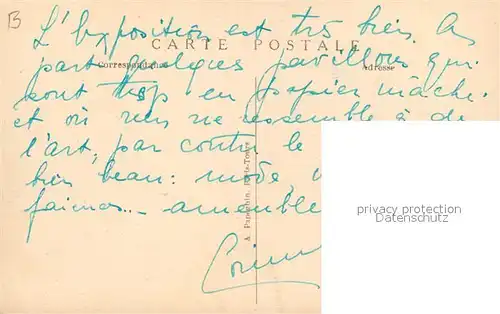 B
L'Exposition est très bien. A
CARTE POSTALE
part quelques pavillons qui
Correspondance
Adresse
sont trop en papier mâché.
et où rien ne ressemble à de
l'art, par contre le
bien beau: mode,
A. Papeghin, Paris-Tours
ameuble
privacy protection
privacy protection